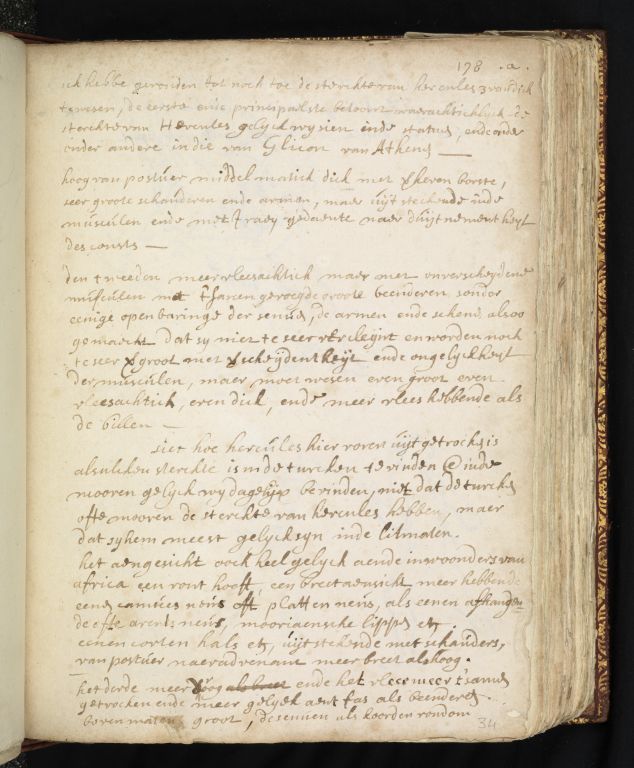 178 .a.
ick hebbe gevonden tot noch toe de sterckte van hercules 3 voudich
te wesen, de eerste ende principaelste betoont waerachtichlyck de
sterckte van Hercules gelyck wy sien inde statues, ende onder
onder andere in die van Glicon van Athenes —
hoog van postuer middelmatich dick met verheven borste,
seer groote schouderen ende armen, maer uijtstekende inde
musculen ende met fraey gedaente naer d'uijtnementheyt
des consts —
den tweeden meer vleesachtich maer met onverscheydene
musculen met t'samengevoegde groote beenderen sonder
eenige openbaringe der senues, de armen ende schene alsoo
gemaeckt dat sy niet te seer en worden noch
te seer groot met verscheydentheyt ende ongelyckheyt
der musculen, maer moet wesen even groot even
vleesachtich, even dick, ende meer vlees hebbende als
de bielen —
siet hoe hercules hier voren uijtgetrocken is
alsulcken sterckte is inde turcken te vinden @ inde
mooren gelyck wy dagelyx bevinden, niet dat de turcken
ofte mooren de sterckte van hercules hebben, maer
dat sy hem meest gelyck syn inde litmaten.
het aengesicht oock heel gelyck aende inwoonders van
africa een ront hooft, een breet aensicht meer hebbende
eene camues neus oft platten neus, als eenen afhangen
de ofte arents neus, mooriaensche lippen etc.
eenen corten hals etc, uijtstekende met schouders,
van postuer naer advenant meer breet als hoog.
het derde meer hoog als breet ende het vlees meer t'samen
getrocken ende meer gelyck aent fas als beenderen
boven maten groot, de senuen als koorden rondom
34